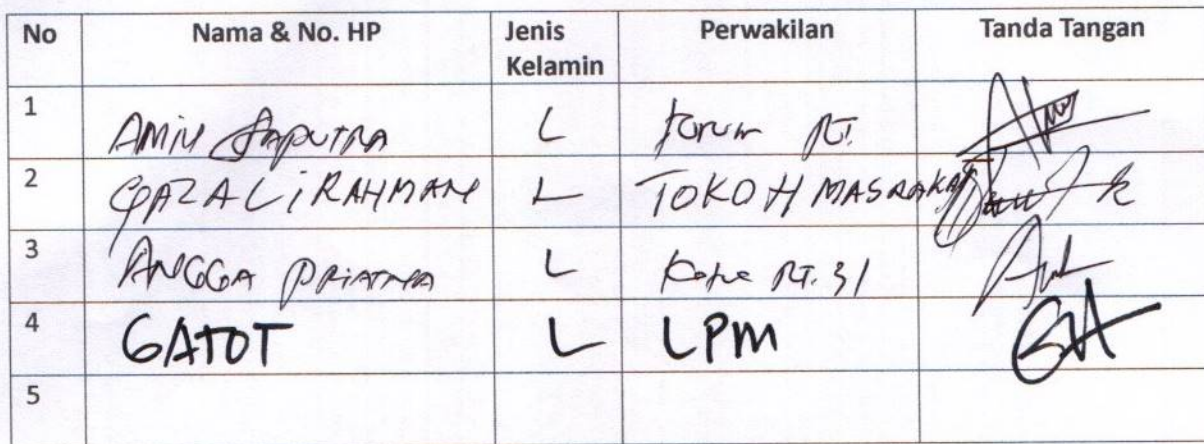 No Nama & No. HP Jenis Kelamin Perwakilan Tanda Tangan
1 AMIN SAPUTRA L Forum RT.
2 GAZALI RAHMAN L TOKOH MASRAKAT
3 ANGGA PRIATNA L RT. 31
4 GATOT L LPM
5